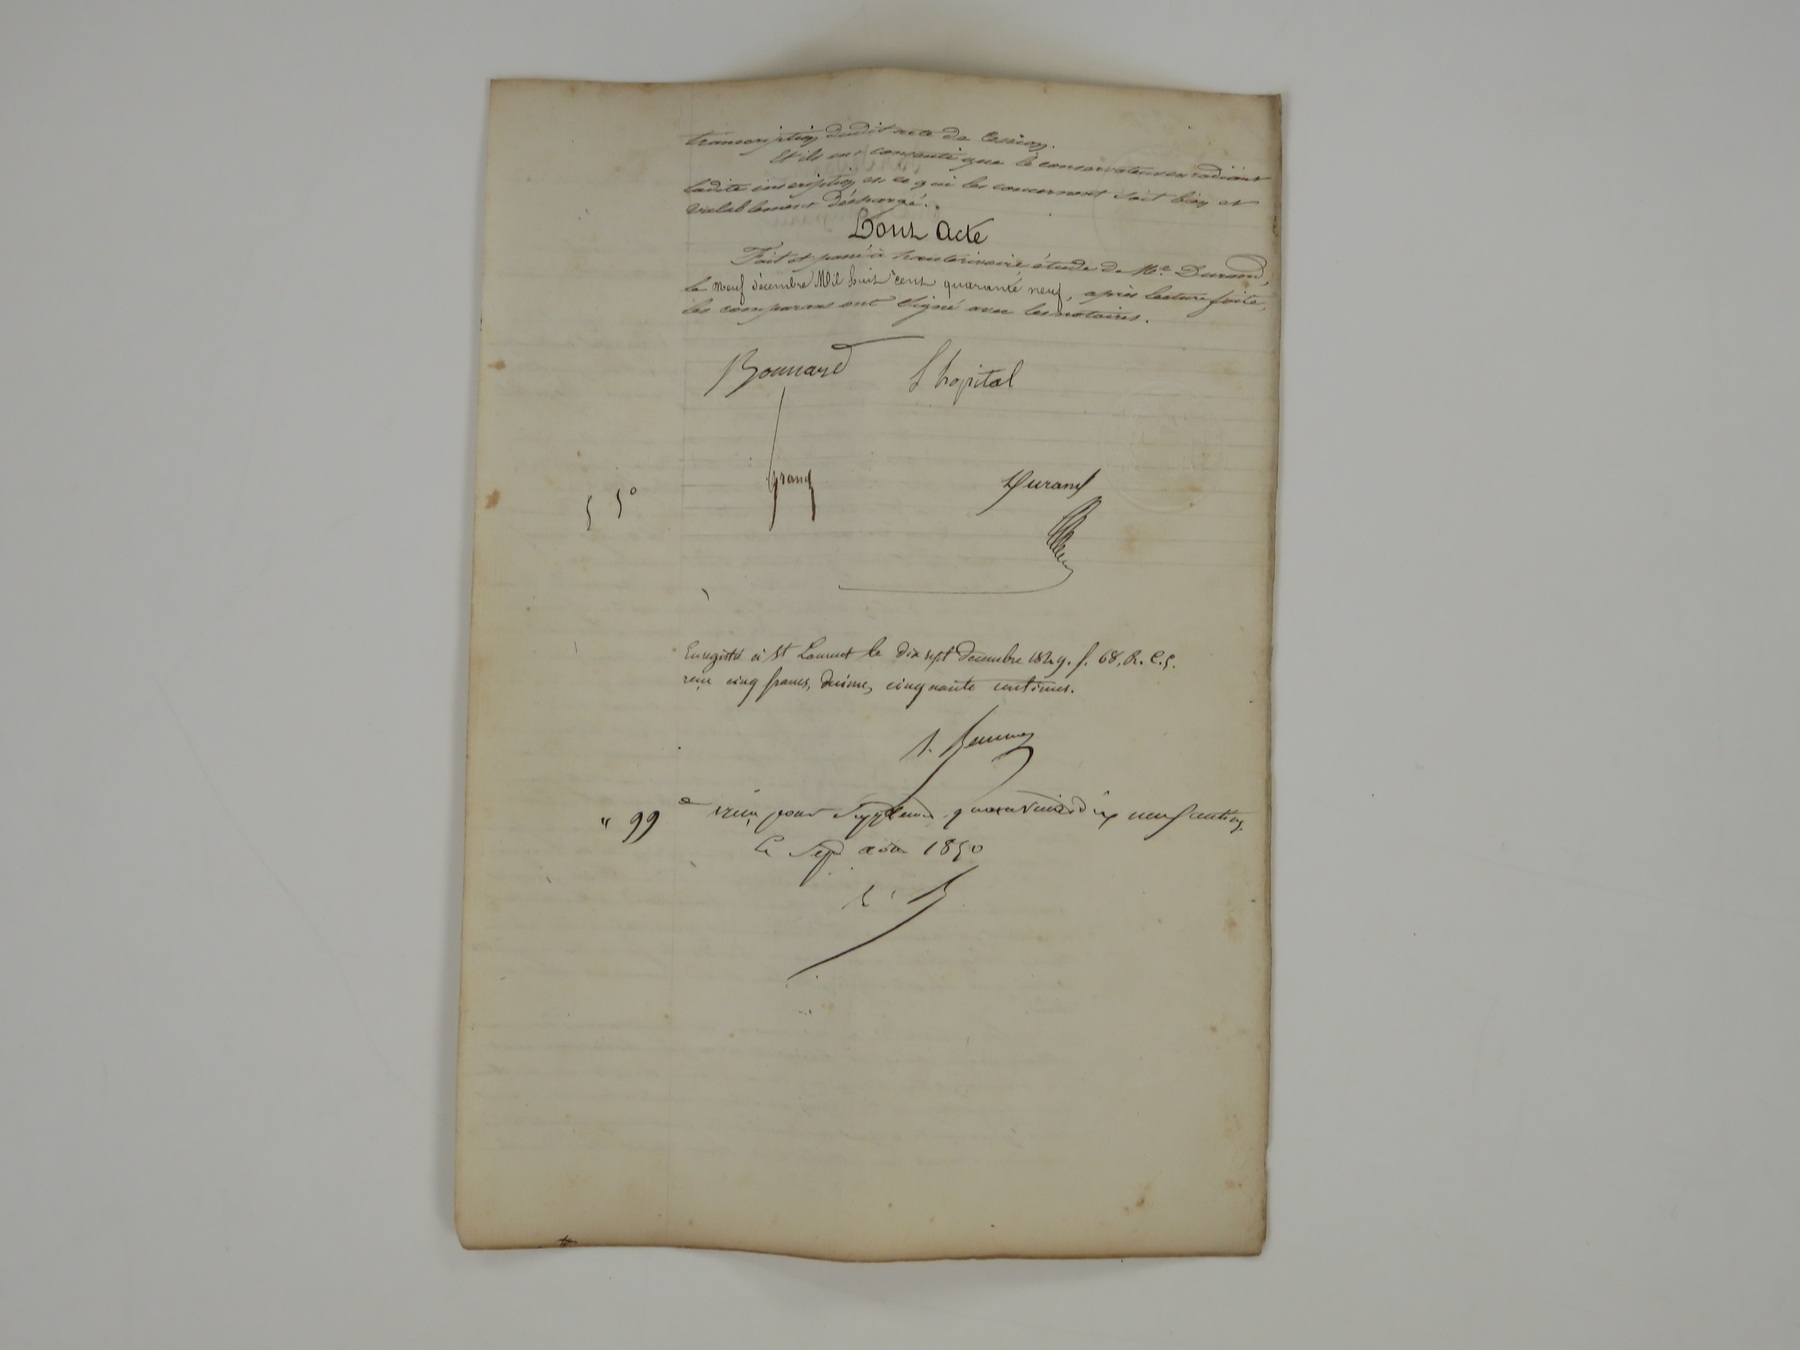 transcription dudit acte de Cession.
Et ils ont consenti que le conservateur en radiant
ladite inscription en ce qui les concernent soit bien et
valablement déchargé.
Dont Acte
Fait et passé à hauterivoire étude de Me Durand,
le neuf décembre Mil huit cent quarante neuf, après lecture faite,
les comparans ont signé avec les notaires.
Bonnard L'hopital
Grand Durand
5 5º
Enregistré à St Laurent le dix sept decembre 1849. f. 68. R. C. 5.
reçu cinq francs, decime, cinquante centimes.
" 99
reçu pour Supplement quatre vingt dix neuf centimes
Le Sept août 1850